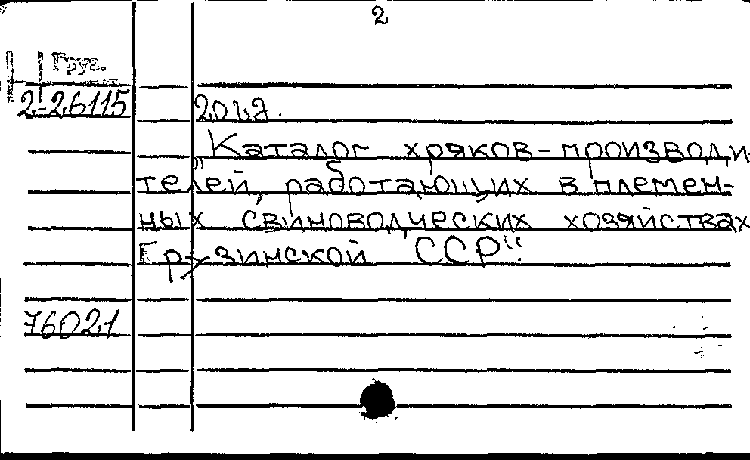 2
Груз.
2-26115
204,7.
„Каталог хряков-производи
телей, работающих в племен-
ных свиноводческих хозяйствах
Грузинской ССР".
76021